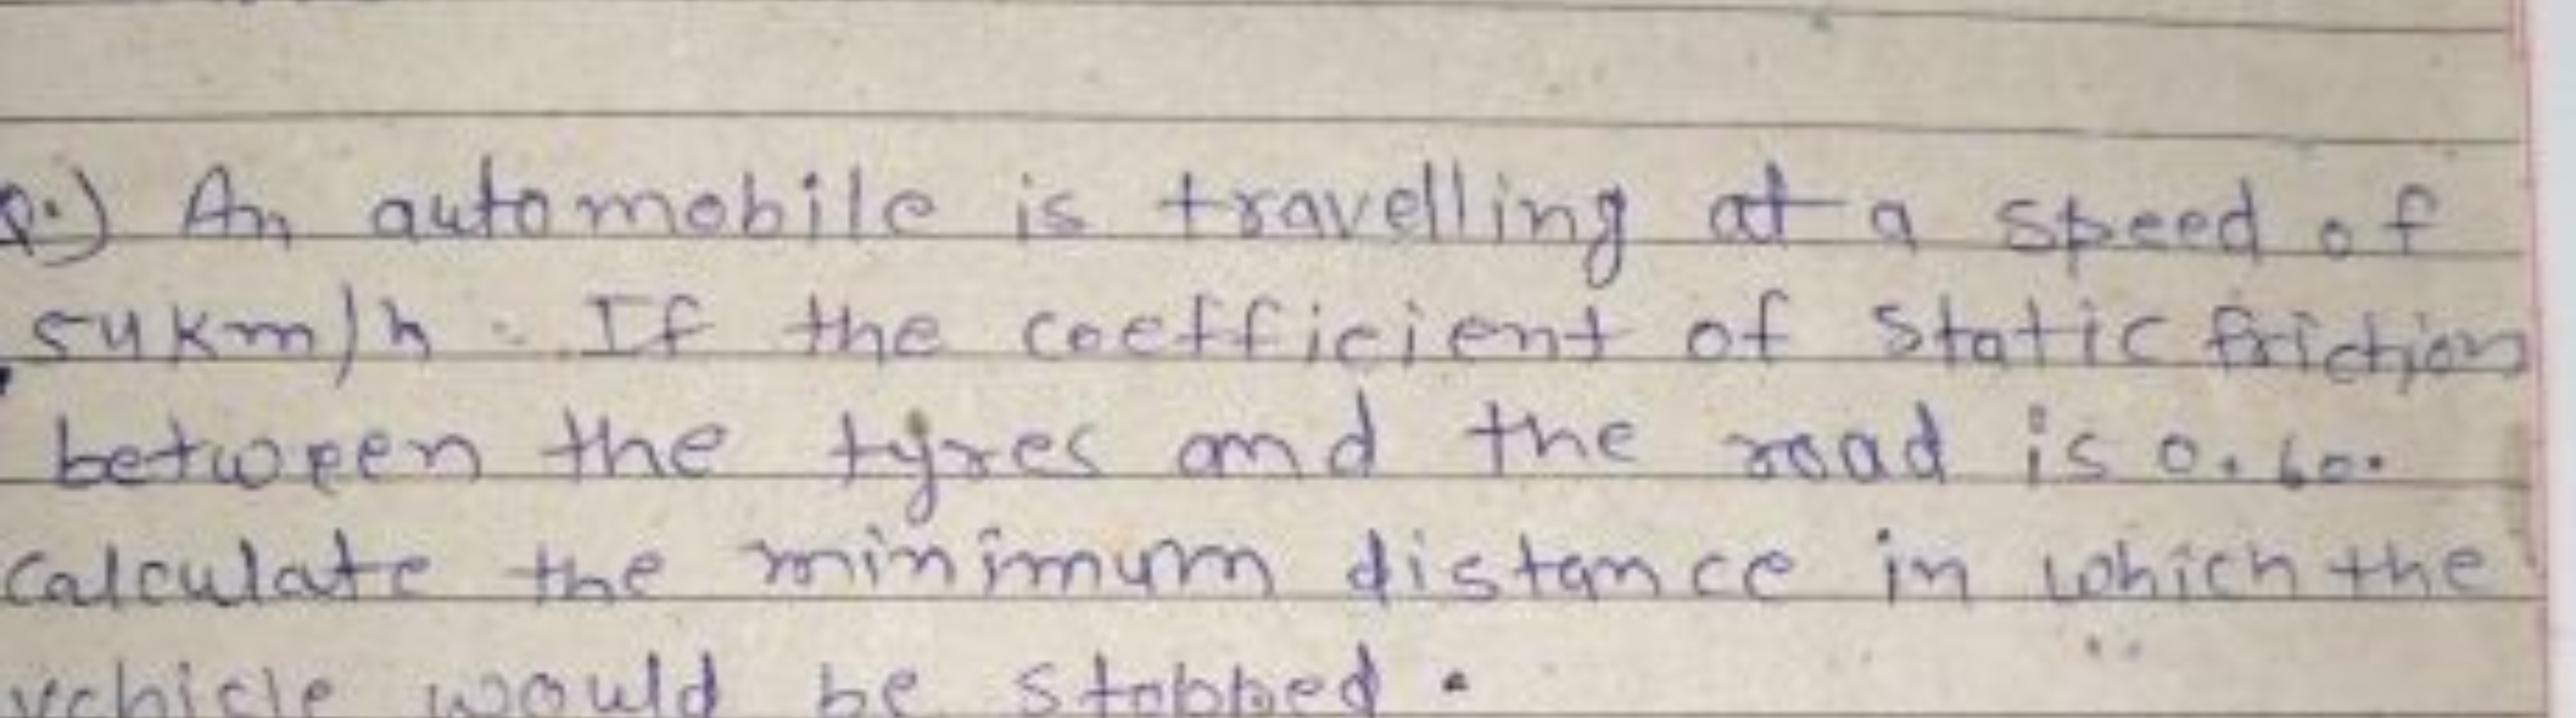 Q.) An automobile is travelling at a speed of
54km/h. If the coefficient of static friction
between the tyres and the road is 0.60.
Calculate the minimum distance in which the
vehicle would be stopped.